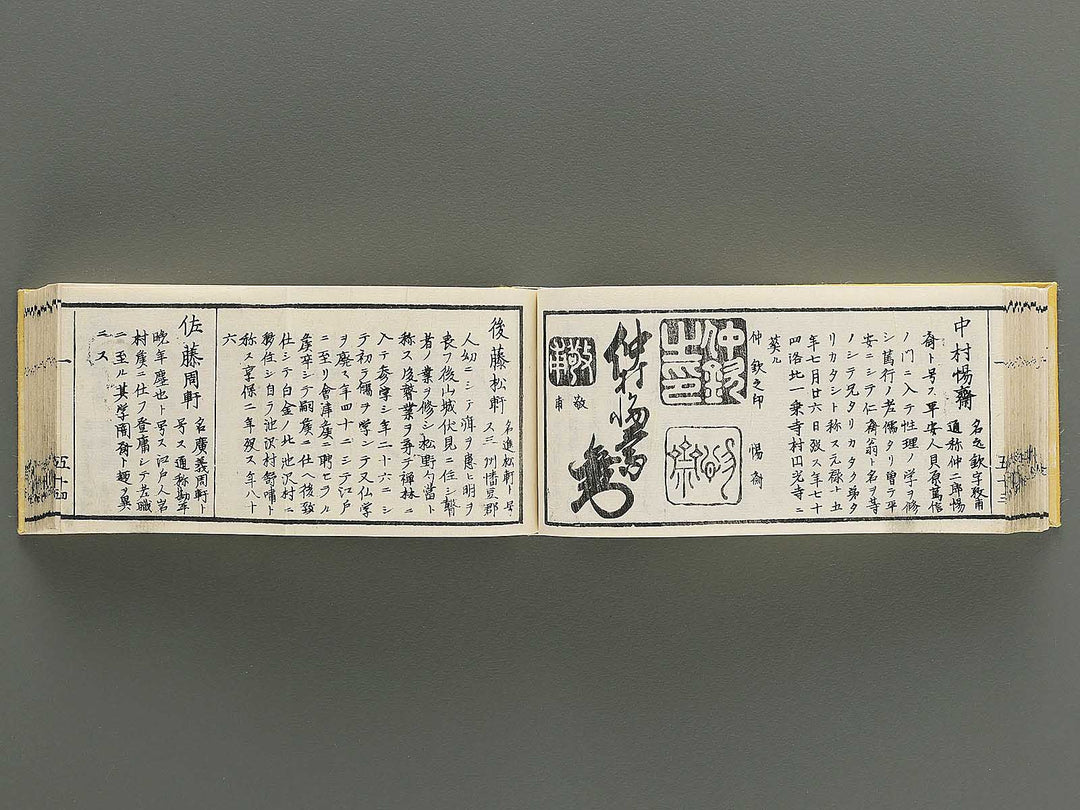 中村惕斎 名之欽字敬甫
通称仲二郎惕
斎ト号ス平安人貝原篤信
ノ門ニ入テ性理ノ学ヲ修
シ篤行ノ老儒タリ曽テ平
安ニシテ仁斎翁ト名ヲ等
ノシテ兄タリカタク弟タ
リカタシト称ス元禄十五
年七月廿六日歿ス年七十
四洛北一乗寺村円光寺ニ
葬ル
仲欽之印
惕斎
仲欽之印
仲村惕斎
敬甫
敬甫
五十三
後藤松軒 名進松軒ト号
ス三州幡豆郡
人幼ニシテ
喪フ後山城伏見ニ住シ醫
者ノ業ヲ修シ松野勾當ト
称ス後醫業ヲ弃テ禅林ニ
入テ参学シ年二十六ニシ
テ初テ儒ヲ学ンテ又仏学
ヲ廃ス年四十二シテ江戸
ニ至リ会津矦ニ聘セラル
矦卒シテ嗣矦ニ仕ヘ後致
仕シテ白金ノ北池沢村ニ
移住シ自ラ池沢村
称ス享保二年歿ス年八十
六
佐藤周軒 名廣義周軒ト
号ス通称勘平
晩年塵也ト号ス江戸人岩
村矦ニ仕フ登庸シテ老職
ニ至ル其学閤斎ト趣ヲ異
ニス
五十四